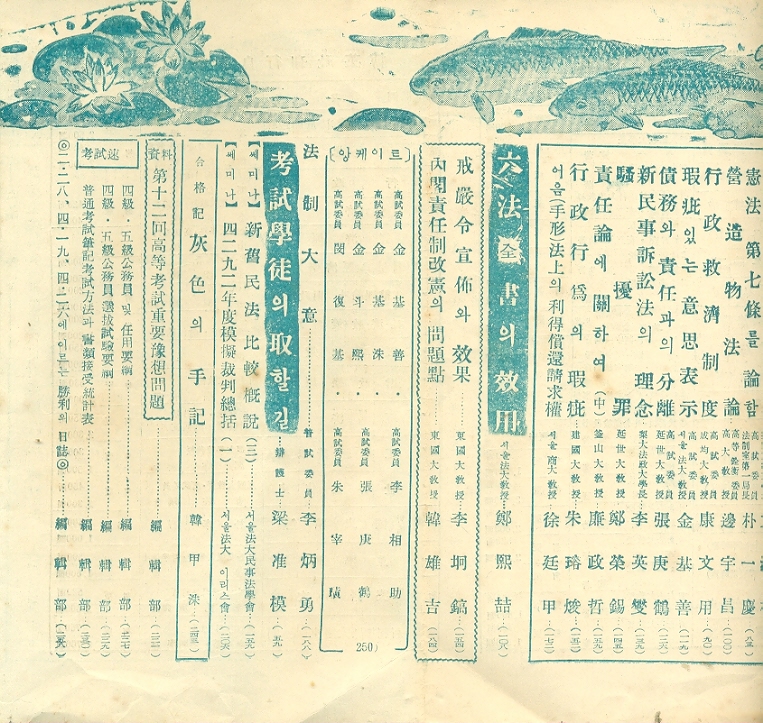 憲法第七條를論함 高試委員 法制室第一局長 朴一慶
營造物法論 高等銓衡委員 高大教授 邊宇昌 (一〇〇)
行政救濟制度 高試委員 成均大教授 康文用 (九〇)
瑕疵있는意思表示 高試委員 서울法大教授 金基善 (一一九)
債務와責任과의分離 高試委員 延世大教授 張庚鶴
新民事訴訟法의理念 梨大法政大學長 李英燮
騷擾罪 延世大教授 鄭榮錫 (一四五)
責任論에關하여(中) 釜山大教授 廉政哲 (一五九)
行政行爲의瑕疵 建國大教授 朱瑢焌 (一五二)
어음(手形)法上의利得償還請求權 서울商大教授 徐廷甲 (一七二)
六法全書의效用 서울法大教授 鄭熙喆 (一〇八)
戒嚴令宣佈와效果 東國大教授 李坰鎬 (一五四)
內閣責任制改憲의問題點 東國大教授 韓雄吉 (一八四)
〔앙케이트〕
高試委員 金基善・高試委員 李相助
高試委員 金基洙・高試委員 張庚鶴
高試委員 金斗熙
高試委員 閔復基・高試委員 朱宰璜
(250)
法制大意 普試委員 李炳勇 (一八八)
考試學徒의取할길 辯護士 梁准模 (五九)
【쎄미나】新舊民法比較槪說(三) 서울法大民事法學會 (一九五)
【쎄미나】四二九二年度模擬裁判總括(一) 서울法大 이리스會 (二〇六)
合格記 灰色의手記 韓甲洙 (二四三)
資料 第十二回高等考試重要豫想問題 編輯部
考試速
四級・五級公務員및任用要綱 編輯部 (二二七)
四級・五級公務員選拔試驗要綱 編輯部 (二二九)
普通考試筆記考試方法과書類接受統計表 編輯部
◎二・二八、四・一九、四・二六에이르는勝利의日誌◎ 編輯部